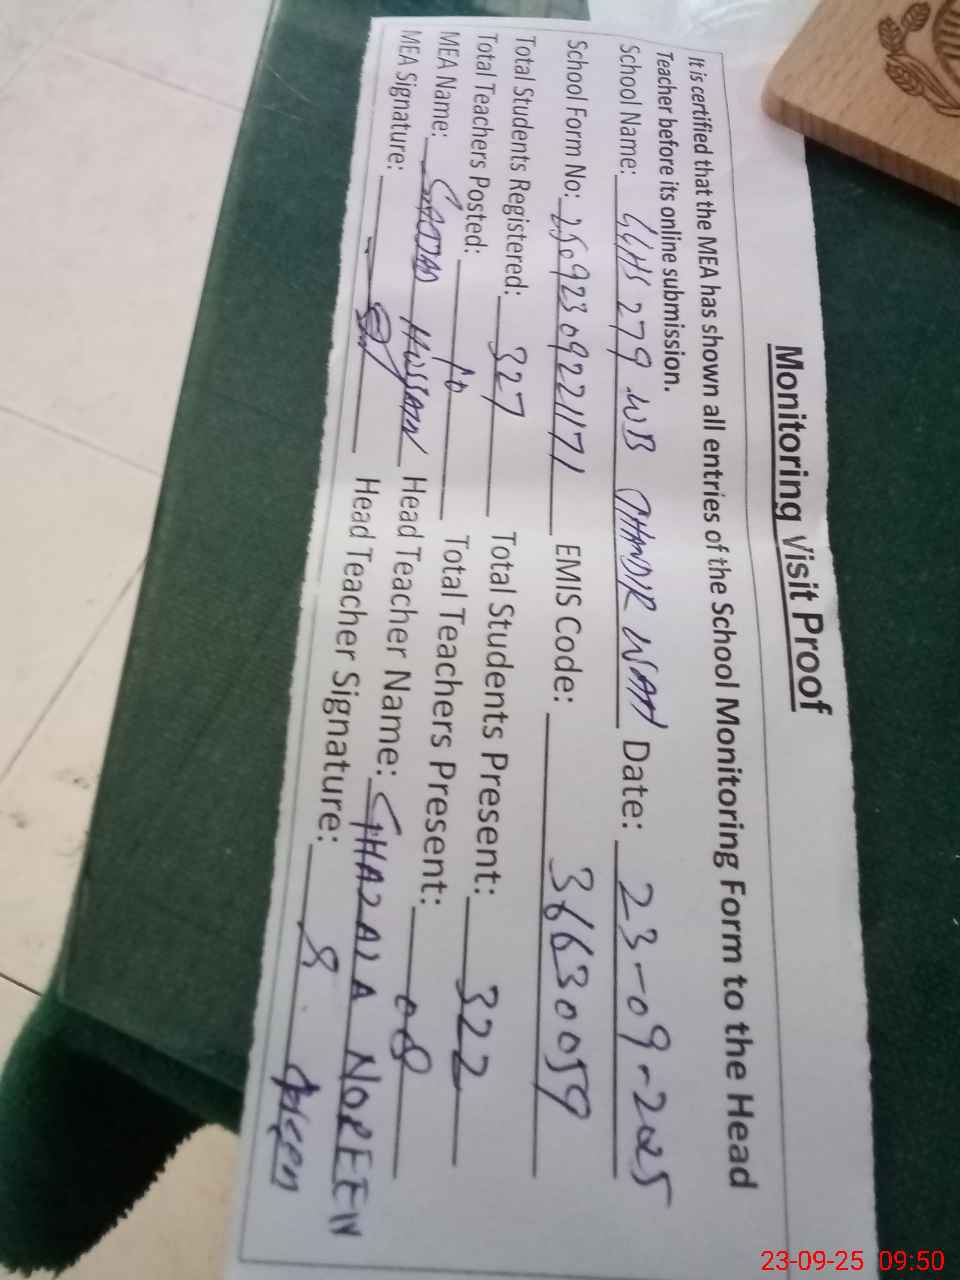 Monitoring Visit Proof
It is certified that the MEA has shown all entries of the School Monitoring Form to the Head
Teacher before its online submission.
School Name: GGHS 279 WB CHANDIR WAH Date: 23-09-2025
School Form No: 25092309221171 EMIS Code: 36630059
Total Students Registered: 327 Total Students Present: 322
Total Teachers Posted: 10 Total Teachers Present: 08
MEA Name: HUSSAIN Head Teacher Name: GHAZALA NOREEN
MEA Signature: Head Teacher Signature:
23-09-25 09:50